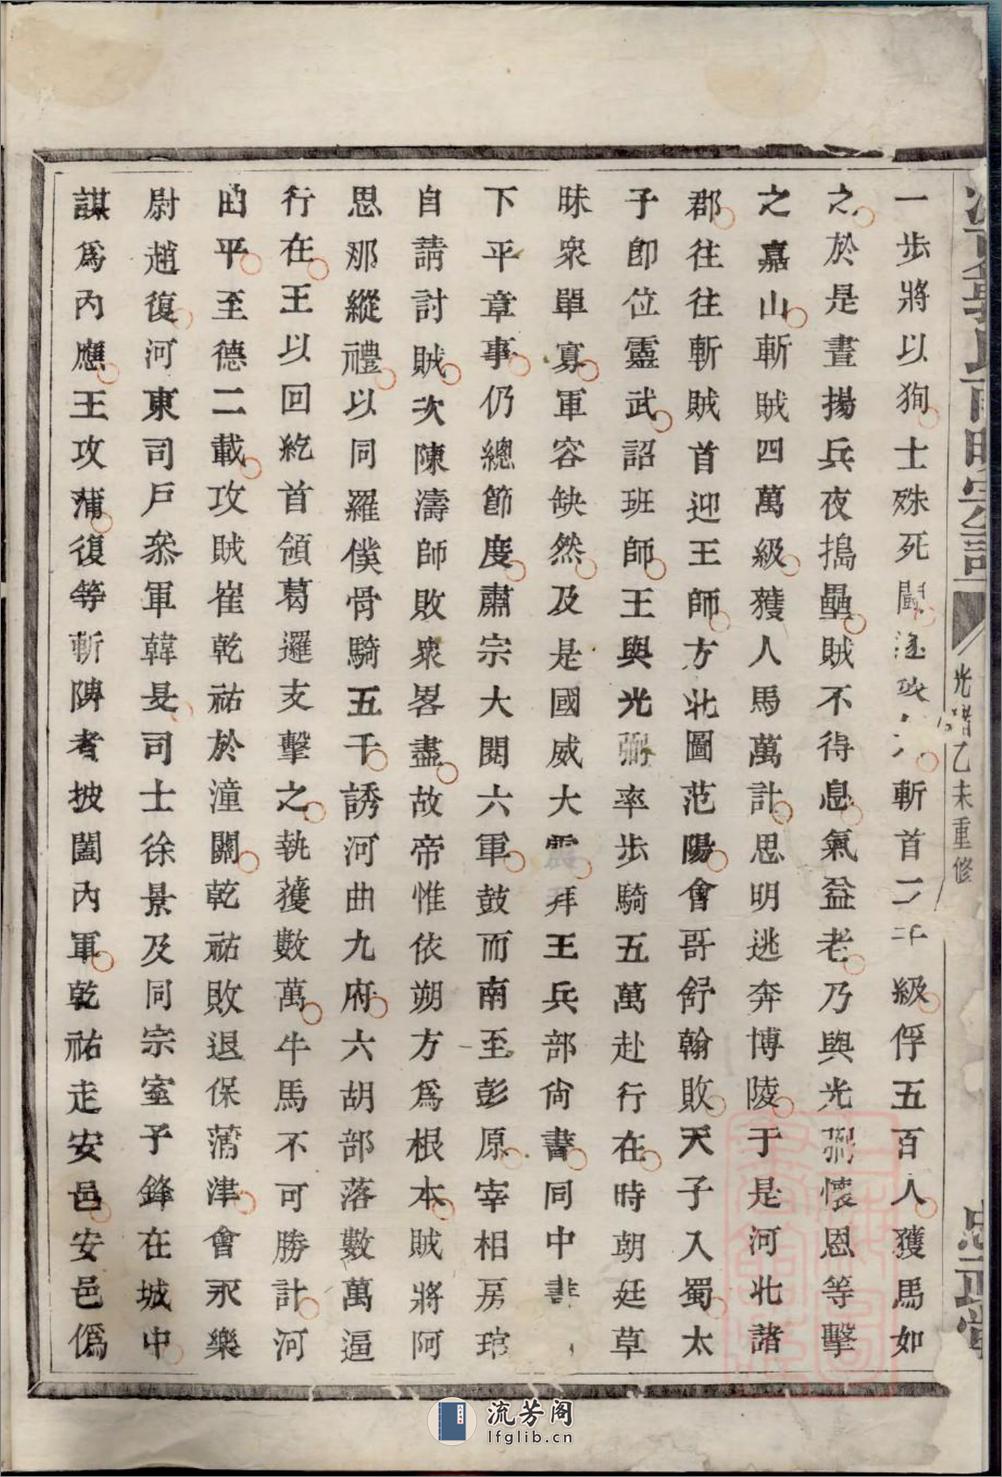 一步將以狥士殊死鬭遂破斬首二千級俘五百人獲馬如
之於是晝揚兵夜搗壘賊不得息氣益老乃與光弼懷恩等擊
之嘉山斬賊四萬級獲人馬萬計思明逃奔博陵于是河北諸
郡往往斬賊首迎王師方北圖范陽會哥舒翰敗天子入蜀太
子卽位靈武詔班師王與光弼率步騎五萬赴行在時朝廷草
昧衆單寡軍容缺然及是國威大震拜王兵部尙書同中書
下平章事仍總節度肅宗大閱六軍鼓而南至彭原宰相房琯
自請討賊次陳濤師敗衆畧盡故帝惟依朔方爲根本賊將阿
思那縱禮以同羅僕骨騎五千誘河曲九府六胡部落數萬逼
行在王以回紇首領葛邏支擊之執獲數萬牛馬不可勝計河
曲平至德二載攻賊崔乾祐於潼關乾祐敗退保蒲津會永樂
尉趙復河東司戶叅軍韓旻司士徐景及同宗室子鋒在城中
謀爲內應王攻蒲復等斬陴者披闔內軍乾祐走安邑安邑僞
光緒乙未重修
忠正堂
流芳阁
lfglib.cn